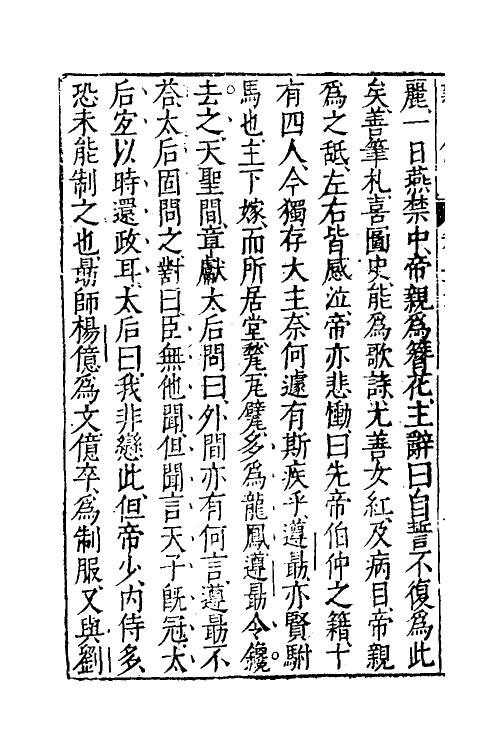 麗、一日燕禁中、帝親爲簪花、主辭曰自誓不復爲此
矣、善筆札、喜圖史、能爲歌詩、尤善女紅、及病目、帝親
爲之舐、左右皆感泣、帝亦悲慟曰先帝伯仲之籍、十
有四人、今獨存大主、奈何遽有斯疾乎、遵勗亦賢駙
馬也、主下嫁、而所居堂甃瓦甓、多爲龍鳳、遵勗令鑱
去之、天聖間、章獻太后問曰、外間亦有何言、遵勗不
荅、太后固問之、對曰臣無他聞、但聞言天子旣冠、太
后宐以時還政耳、太后曰、我非戀此、但帝少、內侍多、
恐未能制之也、勗師楊億爲文、億卒、爲制服、又與劉